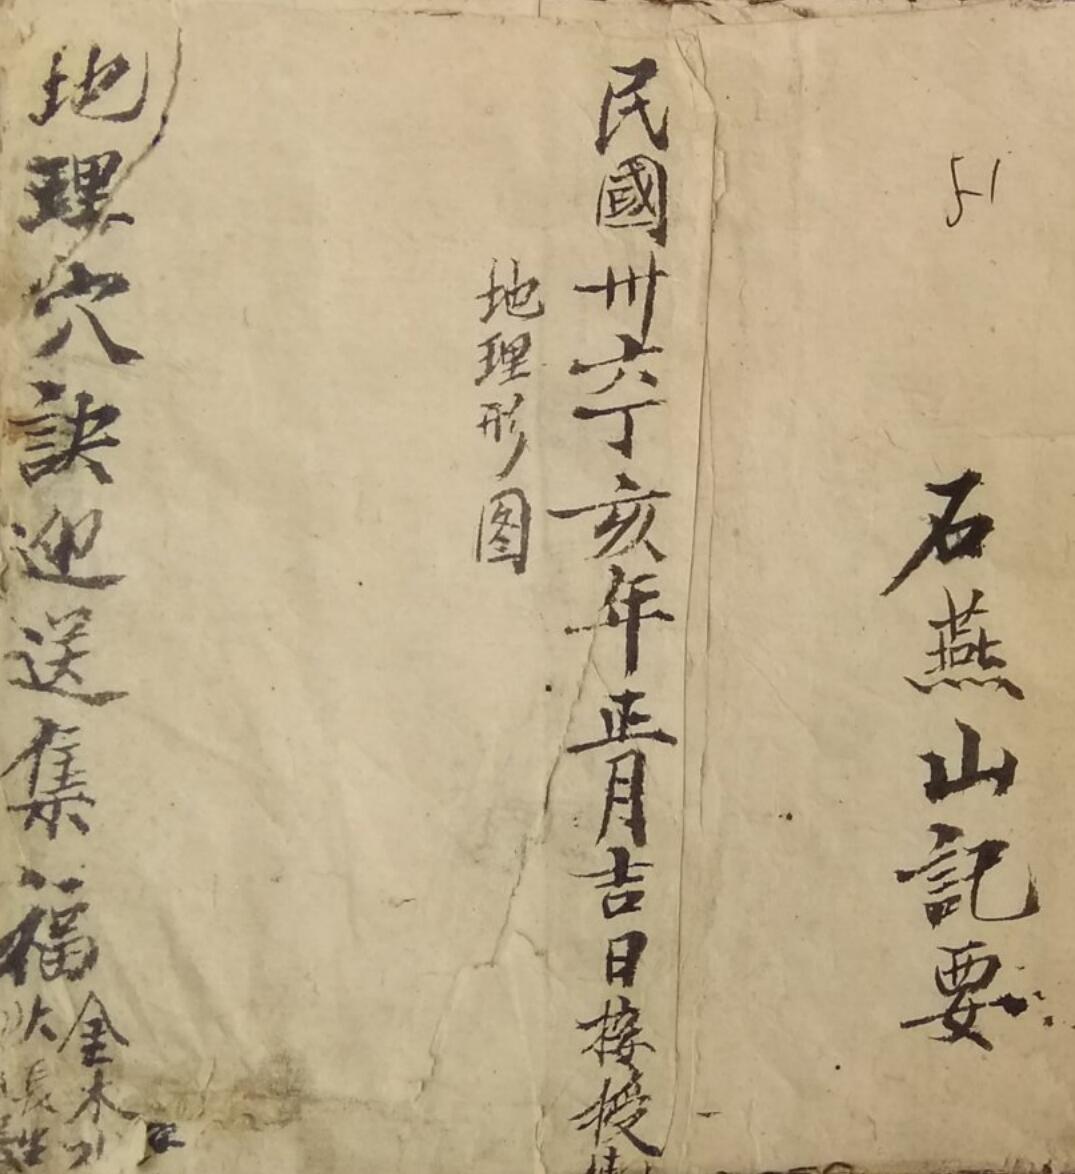 51
石燕山記要
民國卅六丁亥年正月吉日接授
地理形图
地理穴訣迎送集福
金木
火長